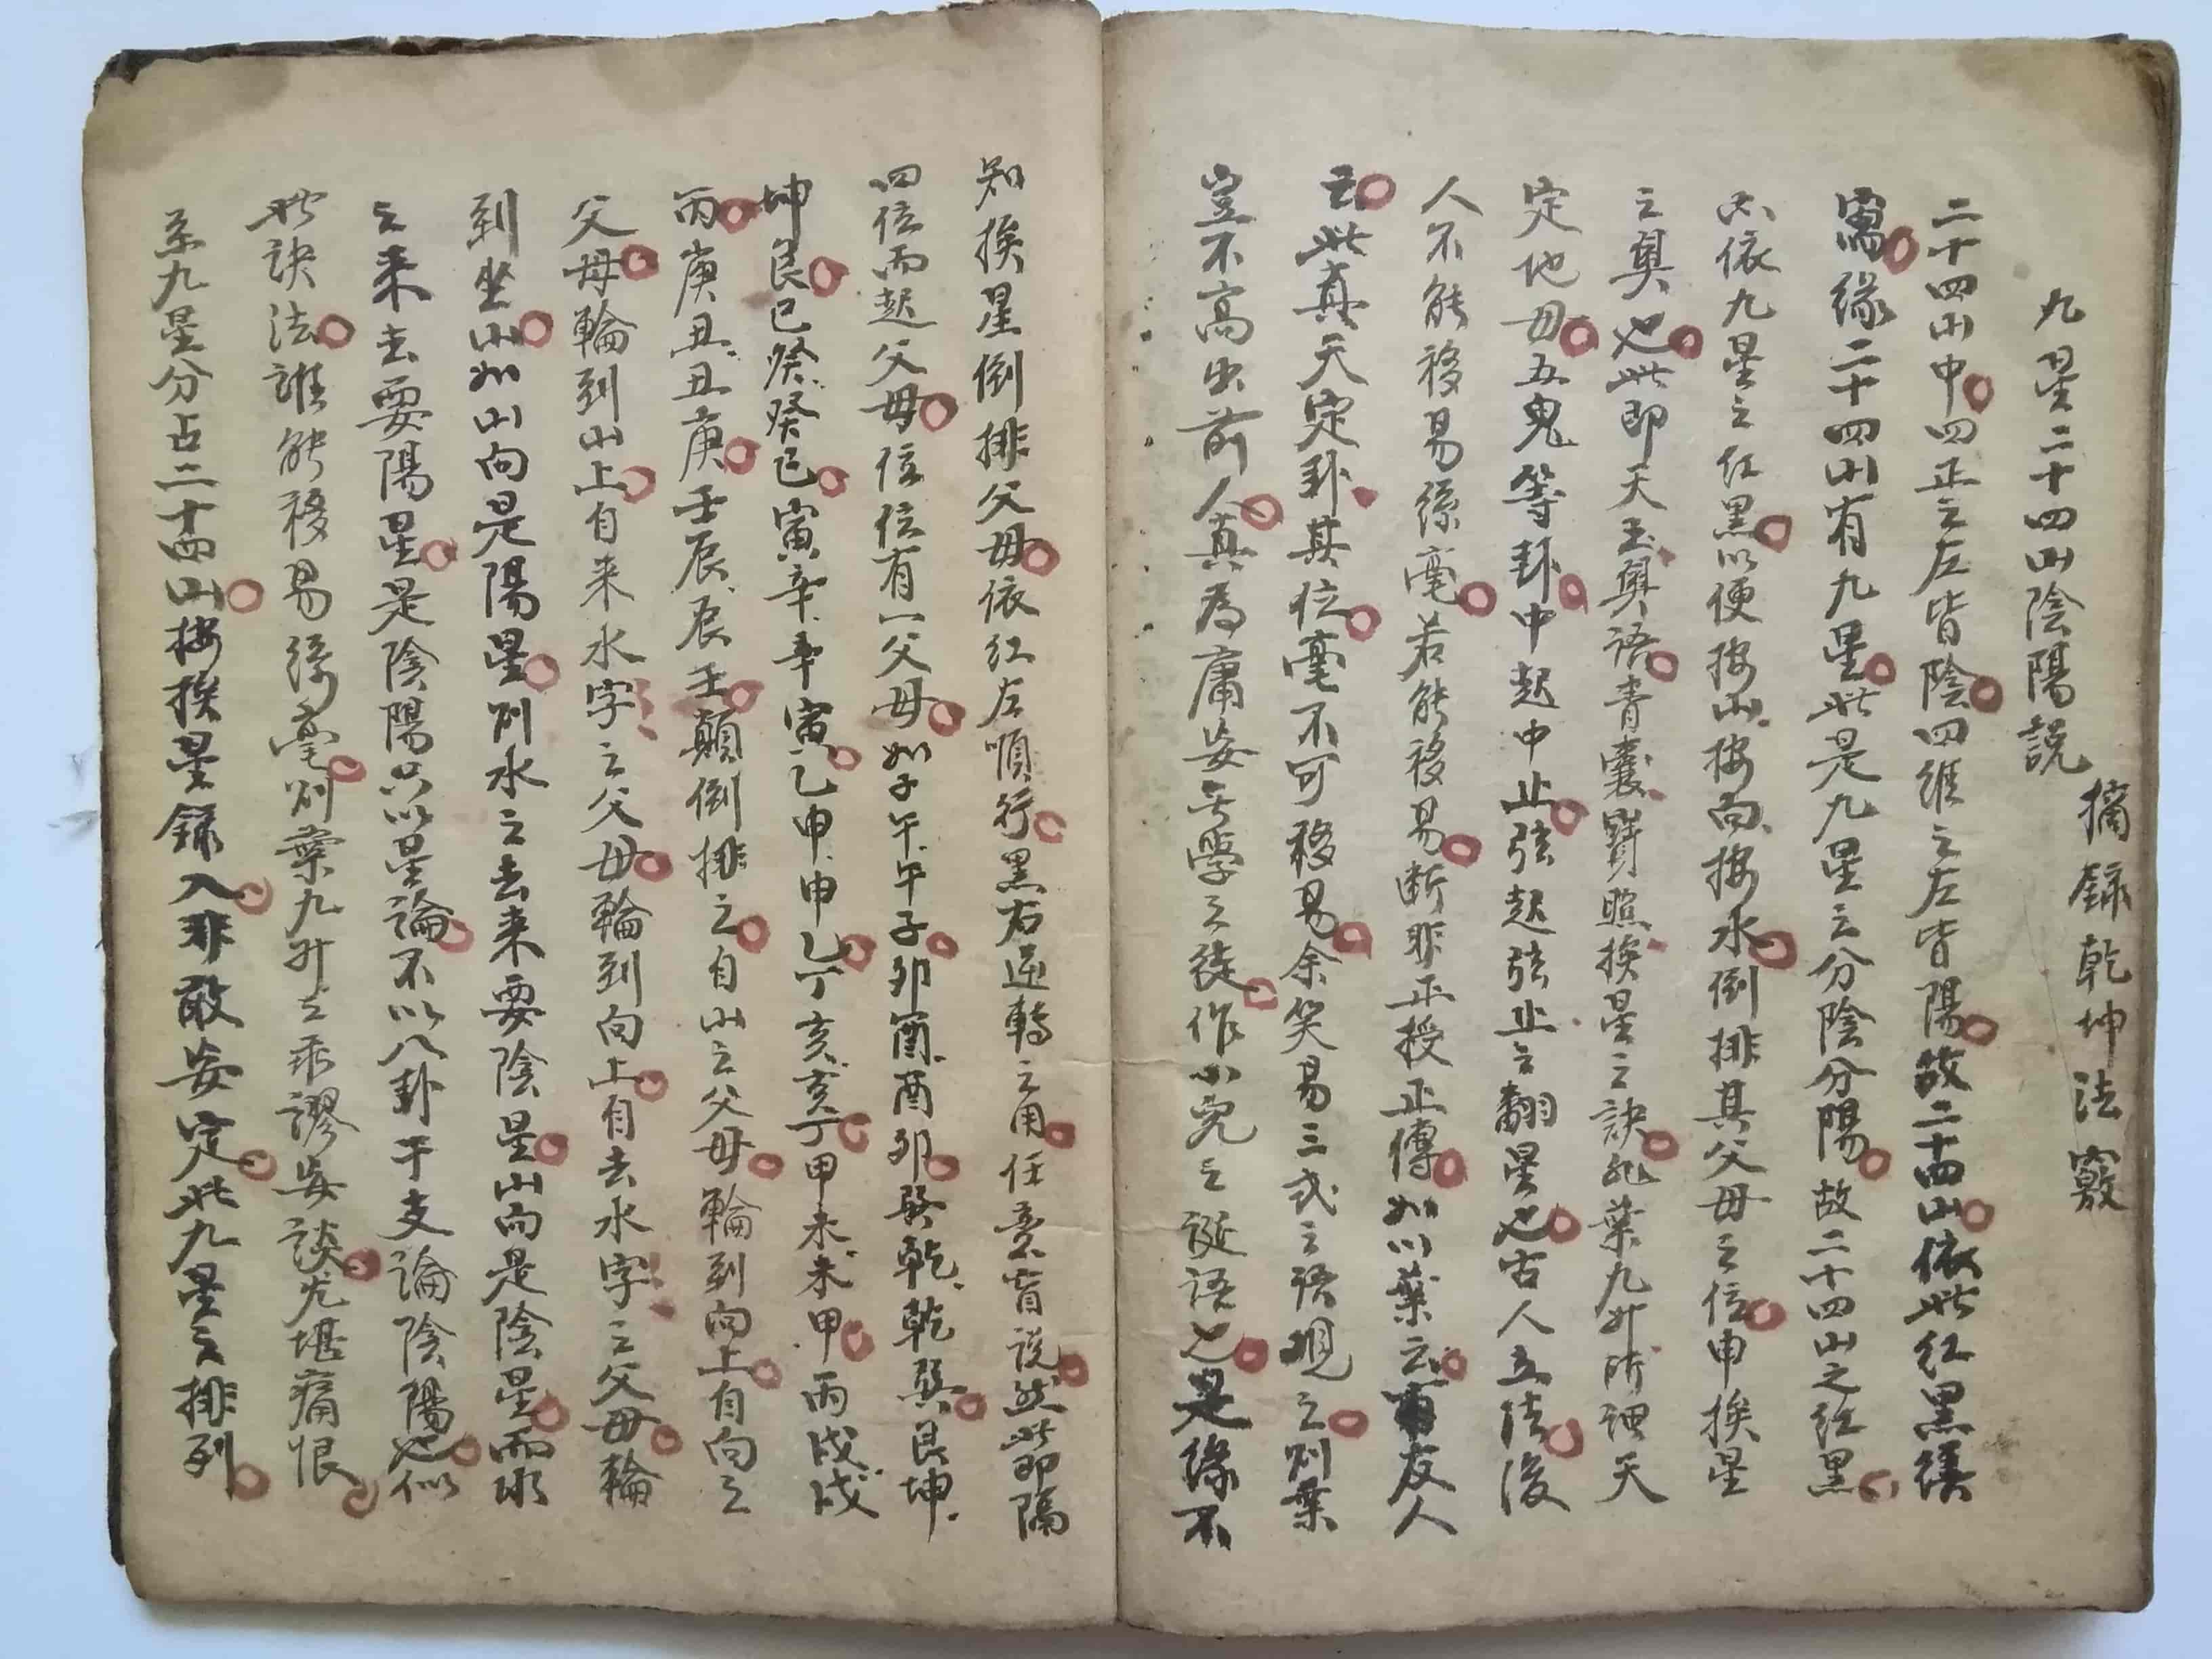 九星二十四山陰陽說
摘錄乾坤法竅
二十四山中四正之左皆陰四維之左皆陽故二十四山依此紅黑填
寫緣二十四山有九星此是九星之分陰分陽故二十四山之紅黑
亦依九星之紅黑以便按山按向按水倒排其父母之位申挨星
之奧也此即天玉奧語青囊寶照挨星之訣非葉九升所謂天
定地母五鬼等卦中起中止弦起弦止之翻星也古人立法後
人不能移易絲毫若能移易斷非正授正傳如以葉云有友人
云此真天定卦其位毫不可移易余笑易三式之語觀之則葉
豈不高出前人真為庸妄無學之徒作小兒之誕語也是緣不
知挨星倒排父母依紅左順行黑右逆轉之用任意盲說然此即隔
四位而起父母位位有一父母如子午午子卯酉酉卯巽乾乾巽艮坤
坤艮巳癸癸巳寅辛辛寅乙申申乙丁亥亥丁甲未未甲丙戌戌
丙庚丑丑庚壬辰辰壬顛倒排之自山之父母輪到向上自向之
父母輪到山上自来水字之父母輪到向上自去水字之父母輪
到坐山如山向是陽星則水之去来要陰星山向是陰星而水
之来去要陽星是陰陽只以星論不以八卦干支論陰陽也似
此訣法誰能移易絲毫則葉九升之乖謬妄談尤堪痛恨
至九星分占二十四山按挨星錄入非敢妄定此九星之排列